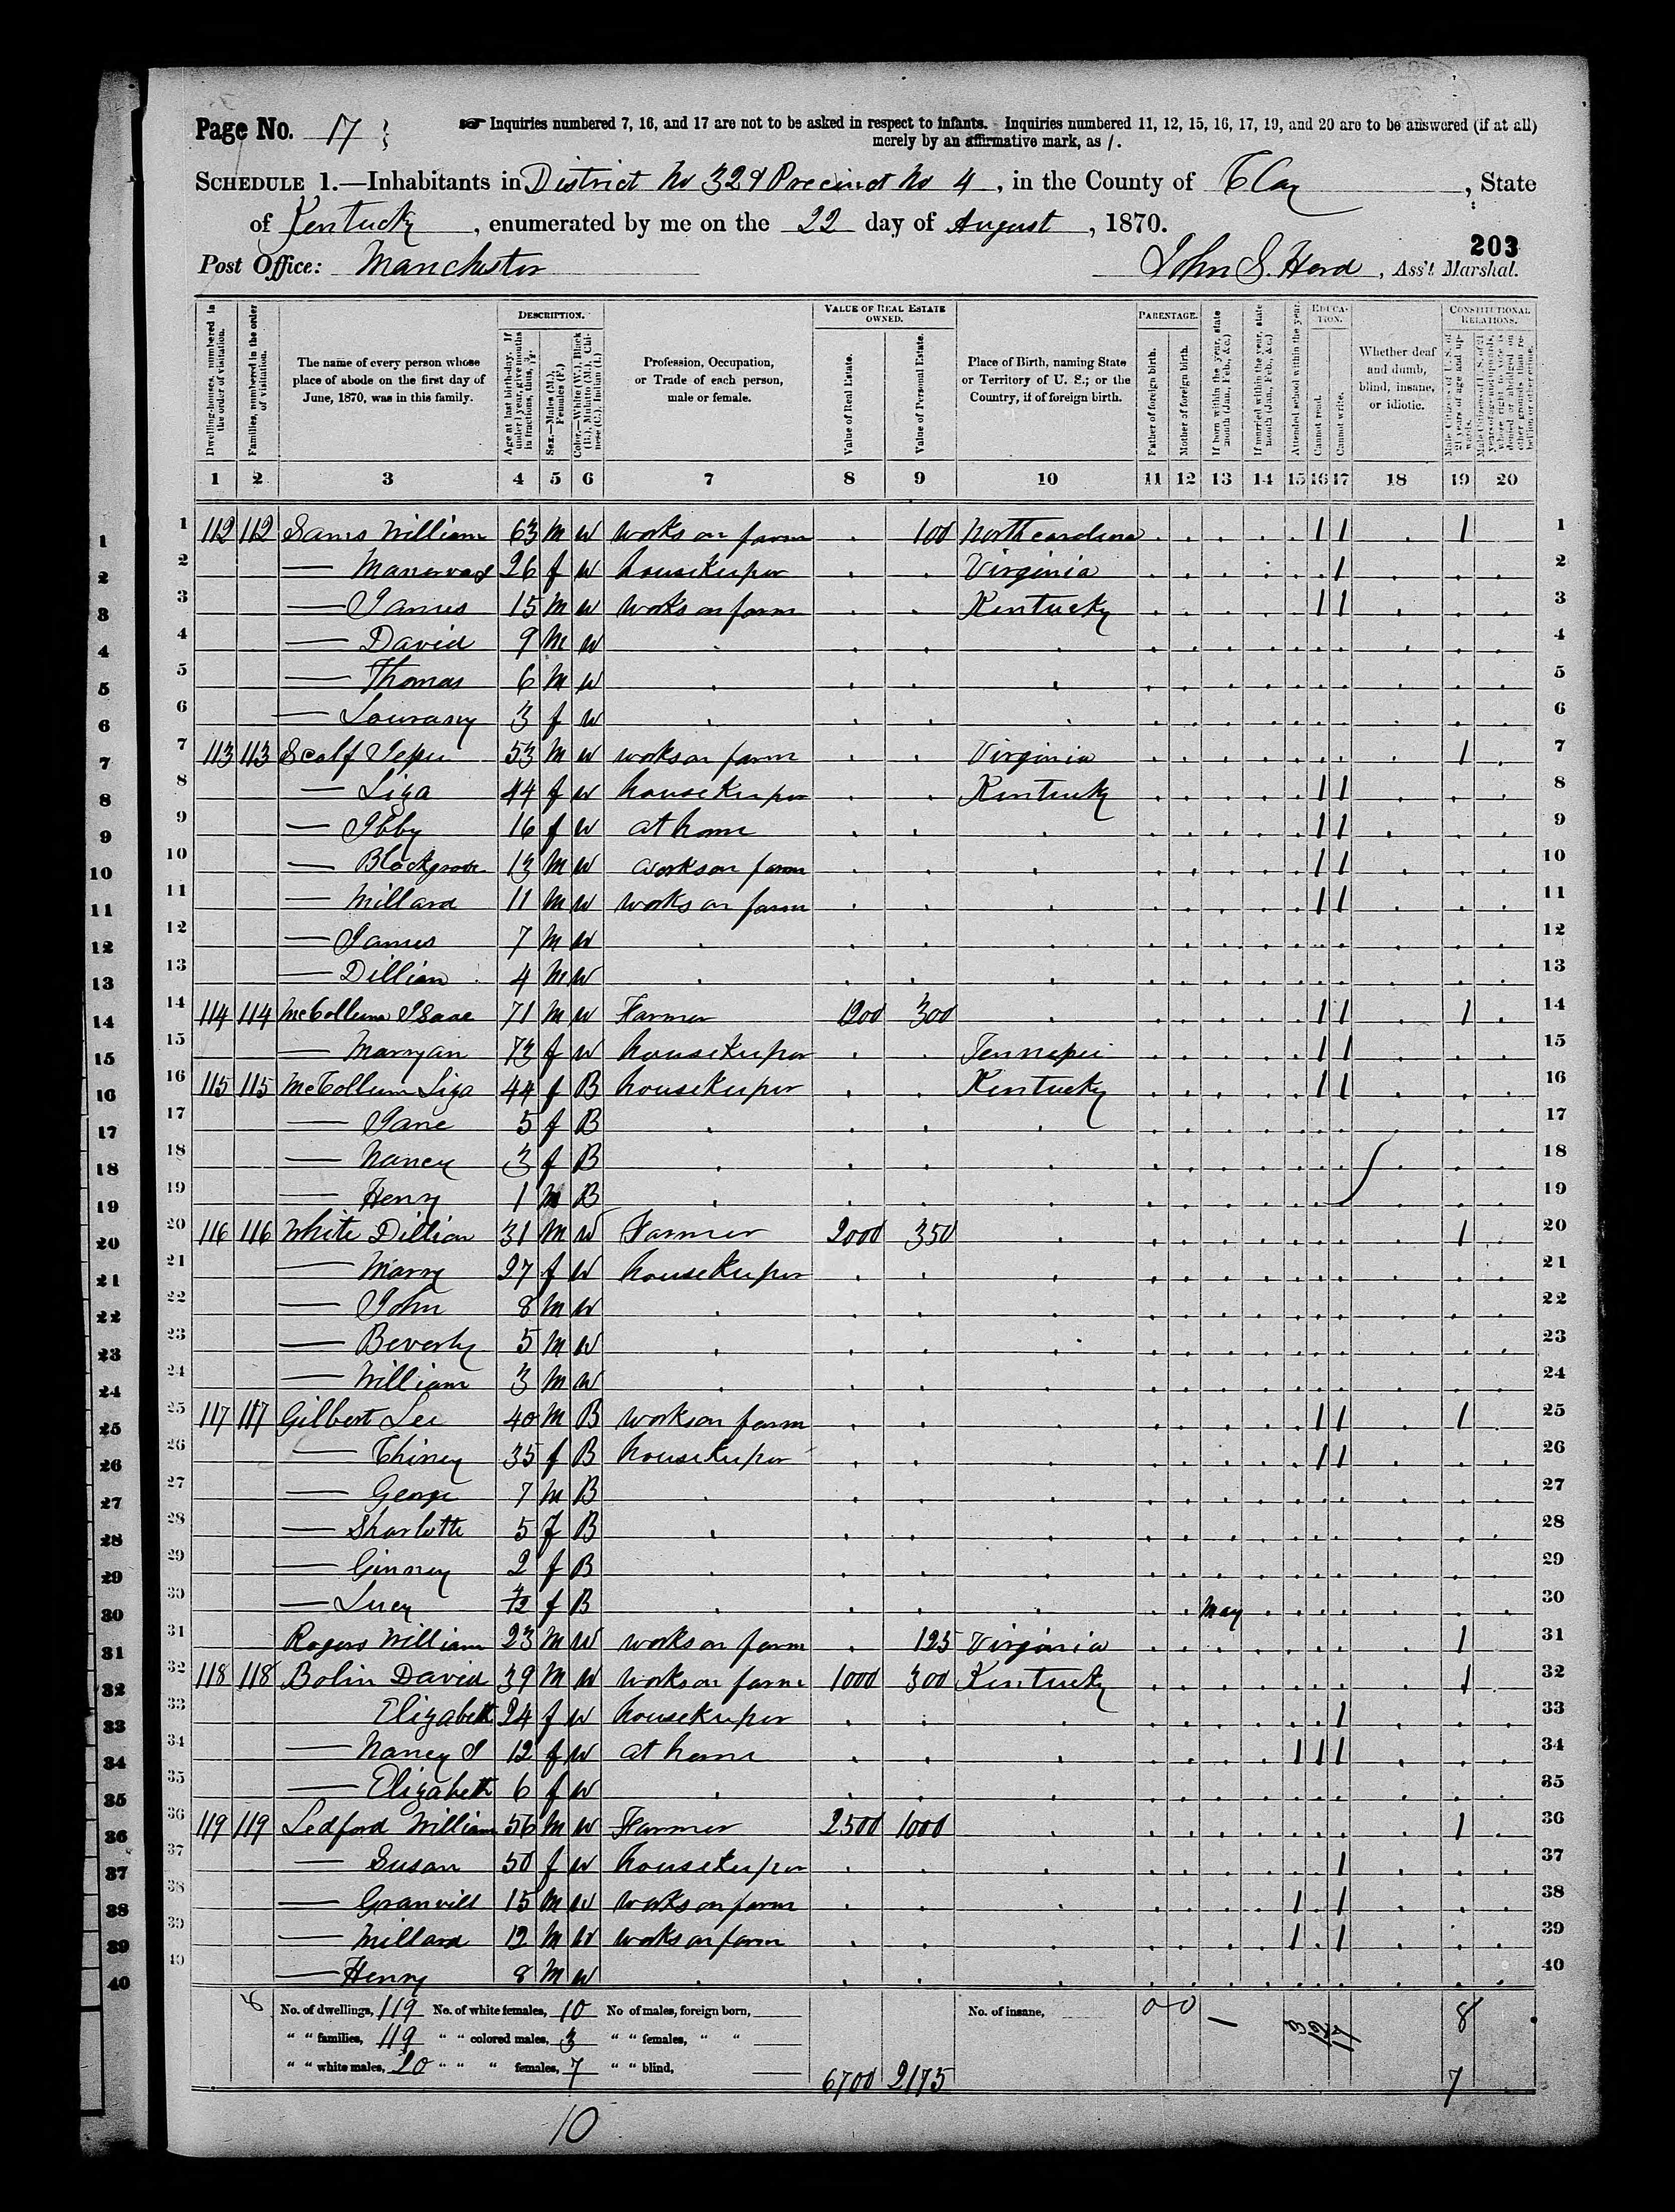 Page No. 17
☞ Inquiries numbered 7, 16, and 17 are not to be asked in respect to infants. Inquiries numbered 11, 12, 15, 16, 17, 19, and 20 are to be answered (if at all)
merely by an affirmative mark, as /.
SCHEDULE 1.—Inhabitants in District No 32 & Precinct No 4, in the County of Clay, State
of Kentucky, enumerated by me on the 22 day of August, 1870.
203
Post Office: Manchester John S. Herd, Ass't Marshal.
DESCRIPTION. VALUE OF REAL ESTATE OWNED. PARENTAGE. EDUCATION. CONSTITUTIONAL RELATIONS.
Dwelling-houses, numbered in the order of visitation. Families, numbered in the order of visitation. The name of every person whose place of abode on the first day of June, 1870, was in this family. Age at last birth-day. If under 1 year, give months in fractions, thus, Sex.—Males (M.), Females (F.) Color.—White (W.), Black (B.), Mulatto (M.), Chinese (C.), Indian (I.) Profession, Occupation, or Trade of each person, male or female. Value of Real Estate. Value of Personal Estate. Place of Birth, naming State or Territory of U. S.; or the Country, if of foreign birth. Father of foreign birth. Mother of foreign birth. If born within the year, state month (Jan., Feb., &c.) If married within the year, state month (Jan., Feb., &c.) Attended school within the year. Cannot read. Cannot write. Whether deaf and dumb, blind, insane, or idiotic. Male Citizens of U. S. of 21 years of age and upwards. Male Citizens of U. S. of 21 years of age and upwards, where right to vote is denied or abridged on other grounds than rebellion or other crime.
1 2 3 4 5 6 7 8 9 10 11 12 13 14 15 16 17 18 19 20
1 112 112 Sams William 63 m w works on farm 100 North carolina 1 1 1 1
2 — 26 f w housekeeper Virginia 1 2
3 — James 15 m w works on farm Kentucky 1 1 3
4 — David 9 m w 4
5 — Thomas 6 m w 5
6 — Lourany 3 f w 6
7 113 113 Scalf 53 m w works on farm Virginia 1 7
8 — Liza 44 f w housekeeper Kentucky 1 1 8
9 — Ibby 16 f w at home 1 1 9
10 — 13 m w works on farm 1 1 10
11 — Millard 11 m w works on farm 1 1 11
12 — James 7 m w 12
13 — Dillian 4 m w 13
14 114 114 McCollum Isaac 71 m w Farmer 1200 300 1 1 1 14
15 — Marryan 73 f w housekeeper Tennessee 1 1 15
16 115 115 McCollum Liza 44 f B housekeeper Kentucky 1 1 16
17 — Jane 5 f B 17
18 — Nancy 3 f B 18
19 — Henry 1 m B 19
20 116 116 White Dillion 31 m w Farmer 2000 350 1 20
21 — Marry 27 f w housekeeper 21
22 — John 8 m w 22
23 — Beverly 5 m w 23
24 — William 3 m w 24
25 117 117 Gilbert Lee 40 m B works on farm 1 1 1 25
26 — Chiney 35 f B housekeeper 1 1 26
27 — George 7 m B 27
28 — Sharlotte 5 f B 28
29 — Ginney 2 f B 29
30 — Lucy f B May 30
31 Rogers William 23 m w works on farm 125 Virginia 1 31
32 118 118 Bolin David 39 m w works on farm 1000 300 Kentucky 1 32
33 Elizabeth 24 f w housekeeper 1 33
34 — Nancy J 12 f w at home 1 1 1 34
35 — Elizabeth 6 f w 35
36 119 119 Ledford William 56 m w Farmer 2500 1000 1 36
37 — Susan 50 f w housekeeper 1 37
38 — Granvill 15 m w works on farm 1 1 38
39 — Millard 12 m w works on farm 1 1 39
40 — Henry 8 m w 40
No. of dwellings, 119 No. of white females, 10 No of males, foreign born, No. of insane, 0 0 8
" " families, 119 " " colored males, 3 " " females, " "
" " white males, 20 " " " females, 7 " " blind, 6700 2175 7
10